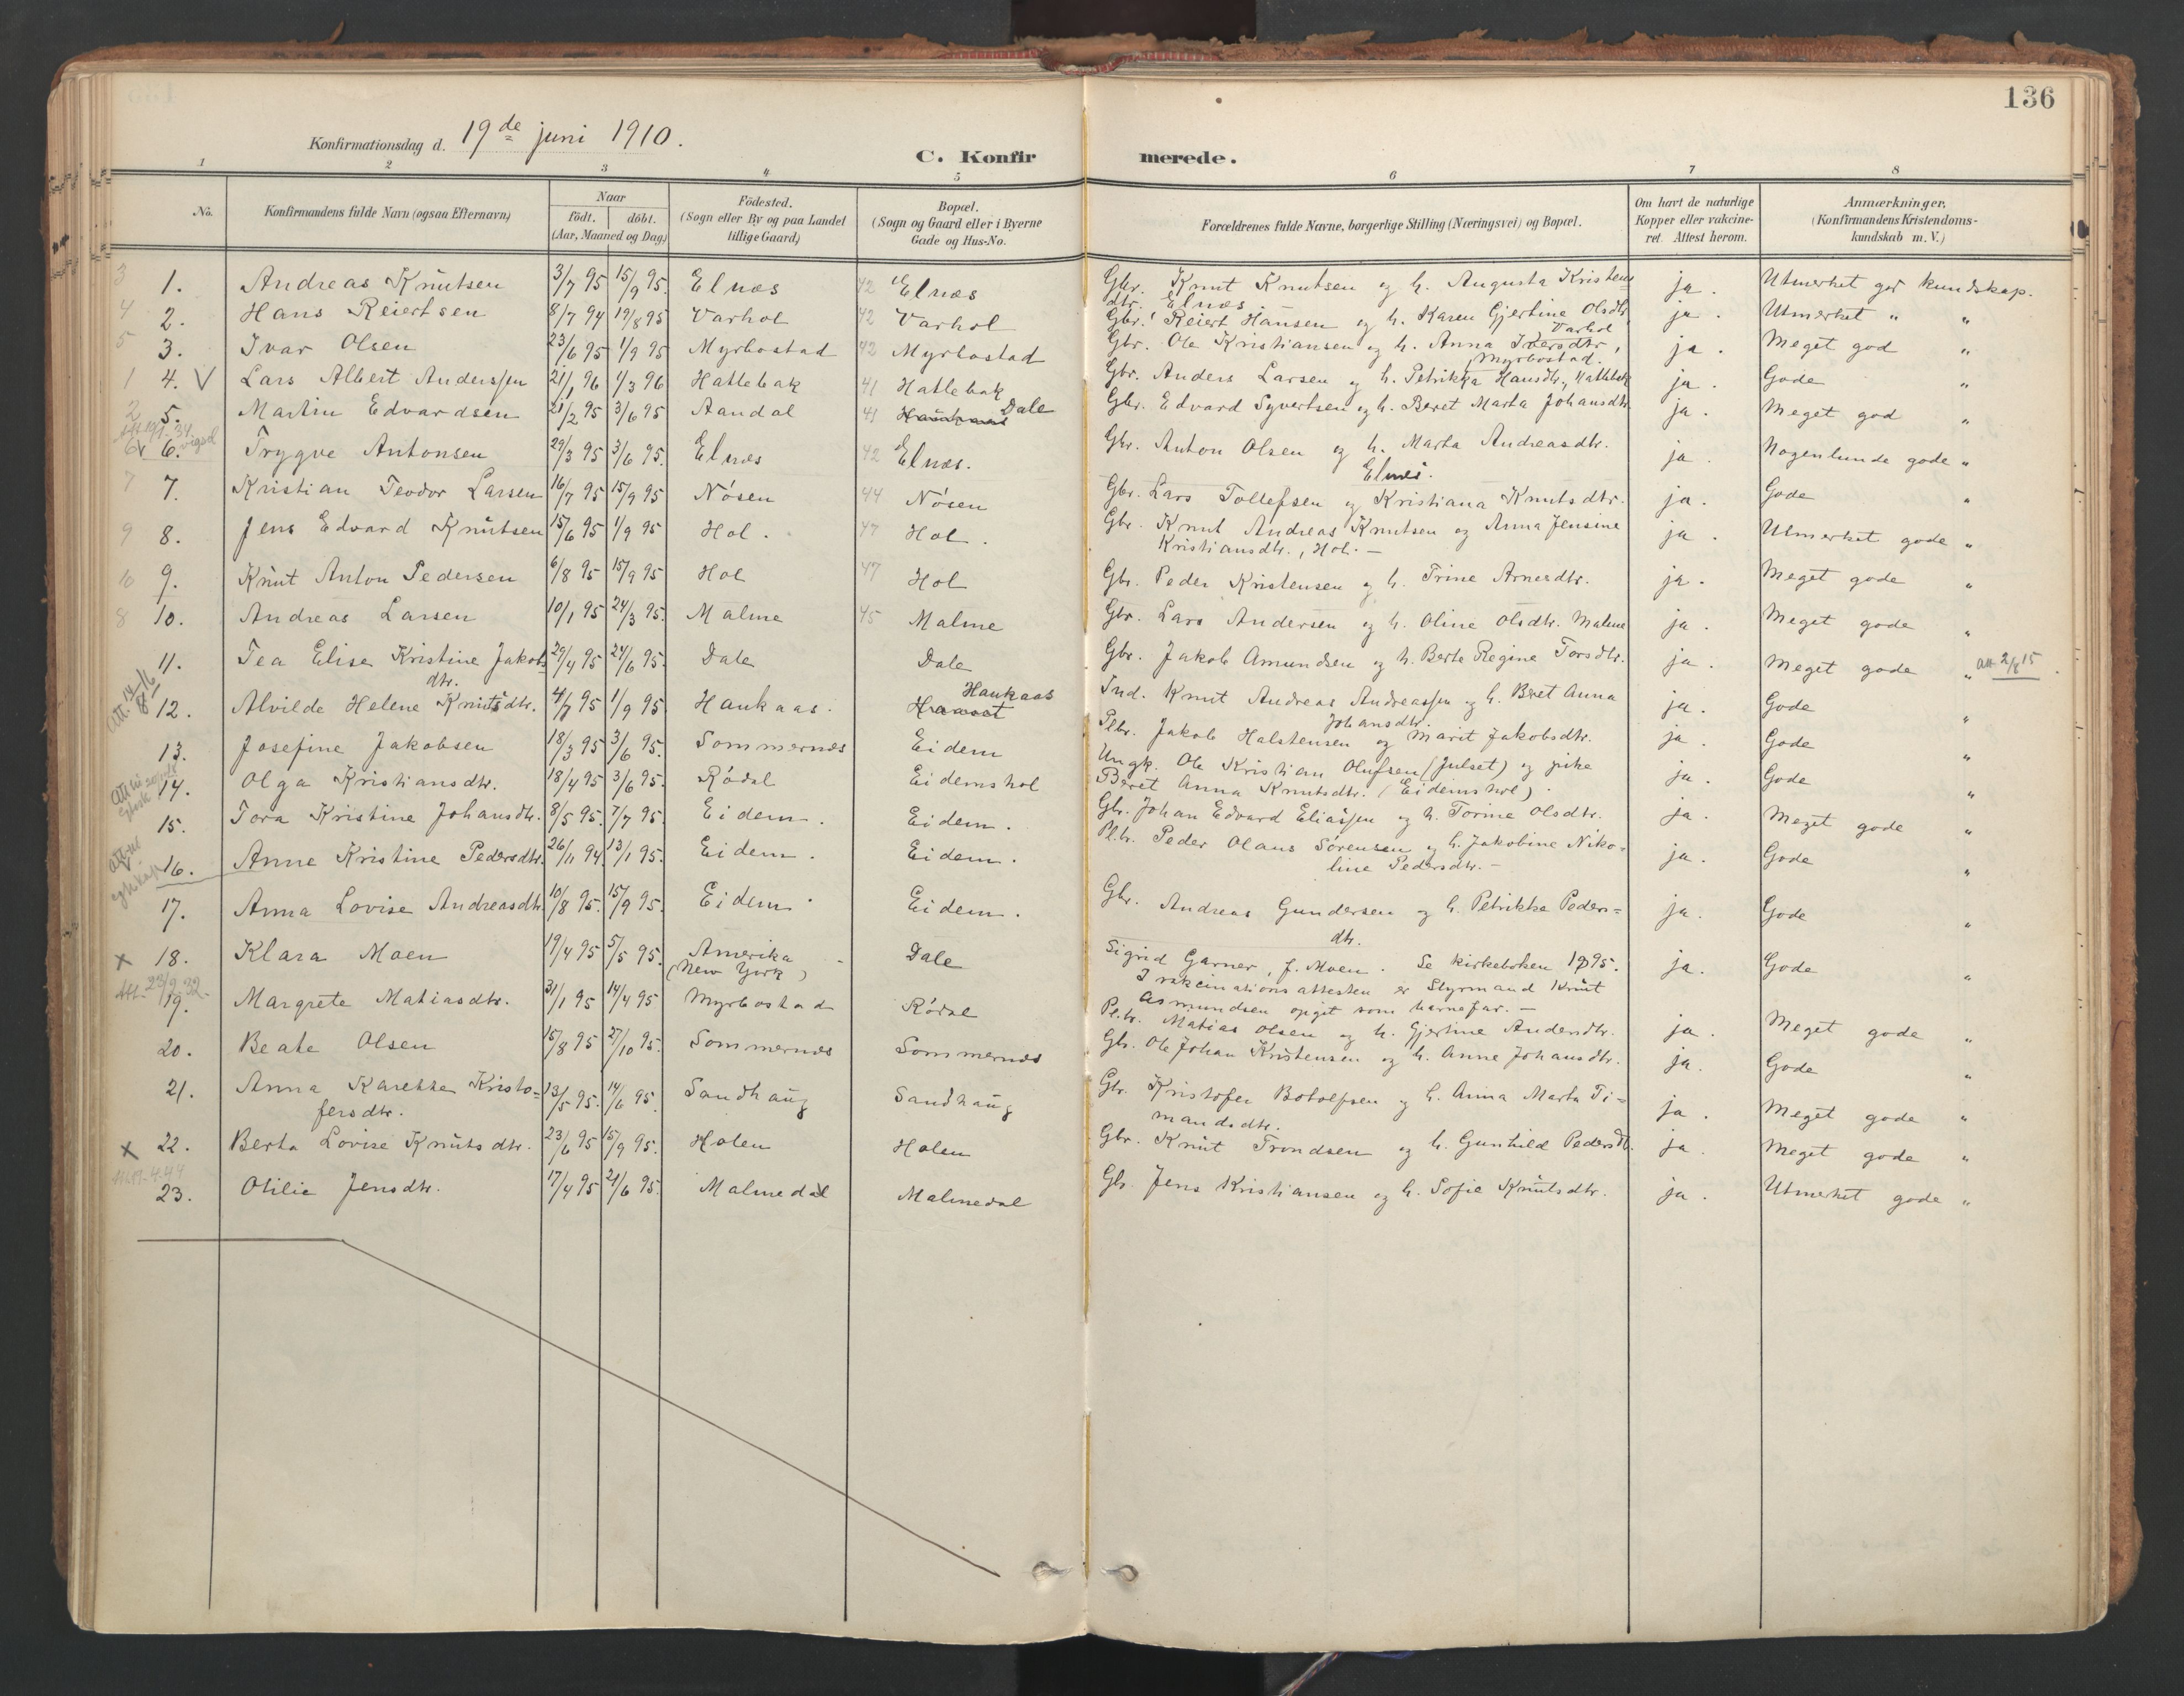 136
Konfirmationsdag d. 19de juni 1910.
C. Konfirmerede.
1 2 3 4 5 6 7 8
No.
Konfirmandens fulde Navn (ogsaa Efternavn)
Naar
födt. | döbt.
(Aar, Maaned og Dag.)
Födested.
(Sogn eller By og paa Landet
tillige Gaard)
Bopæl.
(Sogn og Gaard eller i Byerne
Gade og Hus-No.
Forældrenes fulde Navne, borgerlige Stilling (Næringsvei) og Bopæl.
Om havt de naturlige
Kopper eller vakcine-
ret. Attest herom.
Anmærkninger,
(Konfirmandens Kristendoms-
kundskab m. V.)
3 1. Andreas Knutsen 3/7 95 15/9 95. Elnæs 42 Elnæs Gbr. Knut Knutsen og h. Augusta Kristens
dtr. Elnæs. ja. Utmerket god kundskap.
4 2. Hans Reiertsen 8/7 94 19/8 95 Varhol 42 Varhol Gbr. Reiert Hansen og h. Karen Gjertine Olsdtr.
Varhol ja. Utmerket " "
5 3. Ivar Olsen 23/6 95 1/9 95 Myrbostad 42 Myrbostad Gbr. Ole Kristiansen og h. Anna Iversdtr,
Myrbostad. ja. Meget god "
1 4. V Lars Albert Anderssen 21/1 96 1/3 96 Hatlebak 41 Hatlebak Gbr. Anders Larsen og h. Petrikka Hansdtr., Hatlebak ja. Gode "
2 5. Martin Edvardsen 21/2 95 3/6 95 Aandal 41 Haukaas Dale Gbr. Edvard Syvertsen og h. Beret Marta Johansdtr ja. Meget god "
vigsel
6 V 6. Trygve Antonsen 29/3 95 3/6 95. Elnæs 42 Elnæs. Gbr. Anton Olsen og h. Marta Andreasdtr.
Elnæs. ja. Nogenlunde gode "
7 7. Kristian Teodor Larsen 16/7 95 15/9 95 Nósen 44 Nósen Gbr. Lars Tollefsen og Kristiana Knutsdtr. ja. Gode "
9 8. Jens Edvard Knutsen 15/6 95 1/9 95 Hol. 47 Hol. Gbr. Knut Andreas Knutsen og Anna Jensine
Kristiansdtr., Hol. — ja. Utmerket gode "
10 9. Knut Anton Pedersen 6/8 95 15/9 95 Hol 47 Hol Gbr. Peder Kristensen og h. Trine Arnesdtr. ja. Meget gode "
8 10. Andreas Larsen 10/1 95 24/3 95. Malme 45 Malme Gbr. Lars Andersen og h. Oline Olsdtr. Malme ja. Meget gode "
11. Tea Elise Kristine Jakobs
dtr. 29/4 95 24/6 95. Dale Dale Gbr. Jakob Amundsen og h. Berte Regine Torsdtr. ja. Meget gode " Att 2/8 15.
Att. 14/8 16
12. Alvilde Helene Knutsdtr. 4/7 95 1/9 95 Haukaas. Haukaas Ind. Knut Andreas Andreassen og h. Bret Anna
Johansdtr. ja. Gode "
13. Josefine Jakobsen 18/3 95 3/6 95. Sommernes Eidem Plbr. Jakob Halstensen og Marit Jakobsdtr. ja. Gode "
14. Olga Kristiansdtr. 18/4 95 3/6 95. Ródal Eidemshol Ungk. Ole Kristian Olufsen (Julset) og pike
Beret Anna Knutsdtr. (Eidemshol). ja. Gode "
15. Tora Kristine Johansdtr. 8/5 95. 7/7 95. Eidem. Eidem. Gbr. Johan Edvard Eliassen og h. Torine Olsdtr. ja. Meget gode "
16. Anne Kristine Pedersdtr. 26/11 94. 13/1 95. Eidem. Eidem. Pl.br. Peder Olaus Sórensen og h. Jakobine Niko=
line Pedersdtr. — ja. Gode "
17. Anna Lovise Andreasdtr. 10/8 95. 15/9 95. Eidem Eidem. Gbr. Andreas Gundersen og h. Petrikke Peders=
dtr. ja. Gode "
x 18. Klara Moen 19/4 95 5/5 95. Amerika
(New York) Dale Sigrid Garner, f. Moen. Se kirkeboken 1895.
I vakcinationsattesten er Styrmand Knut
Asmundsen opgit som barnefar. — ja. Gode "
Att. 23/9 32.
19. Margrete Matiasdtr. 31/1 95 14/4 95 Myrbostad Ródal Pl.br. Matias Olsen og h. Gjertine Andersdtr. ja. Meget gode "
20. Beate Olsen 15/8 95 27/10 95. Sommernes Sommernes Gbr. Ole Johan Kristensen og h. Anne Johansdtr. ja. Gode "
21. Anna Karekka Kristo=
fersdtr. 13/5 95. 14/6 95. Sandhaug Sandhaug Gbr. Kristofer Botolfsen og h. Anna Marta Ti=
mandsdtr. ja. Meget gode "
x 22. Berta Lovise Knutsdtr. 23/6 95 15/9 95. Holen Holen Gbr. Knut Trondsen og h. Gunhild Pedersdtr. ja. Meget gode "
19.4.44
23. Otilie Jensdtr. 17/4 95 21/6 95. Malmedal Malmedal Gbr. Jens Kristiansen og h. Sofie Knutsdtr. ja. Utmerket gode "